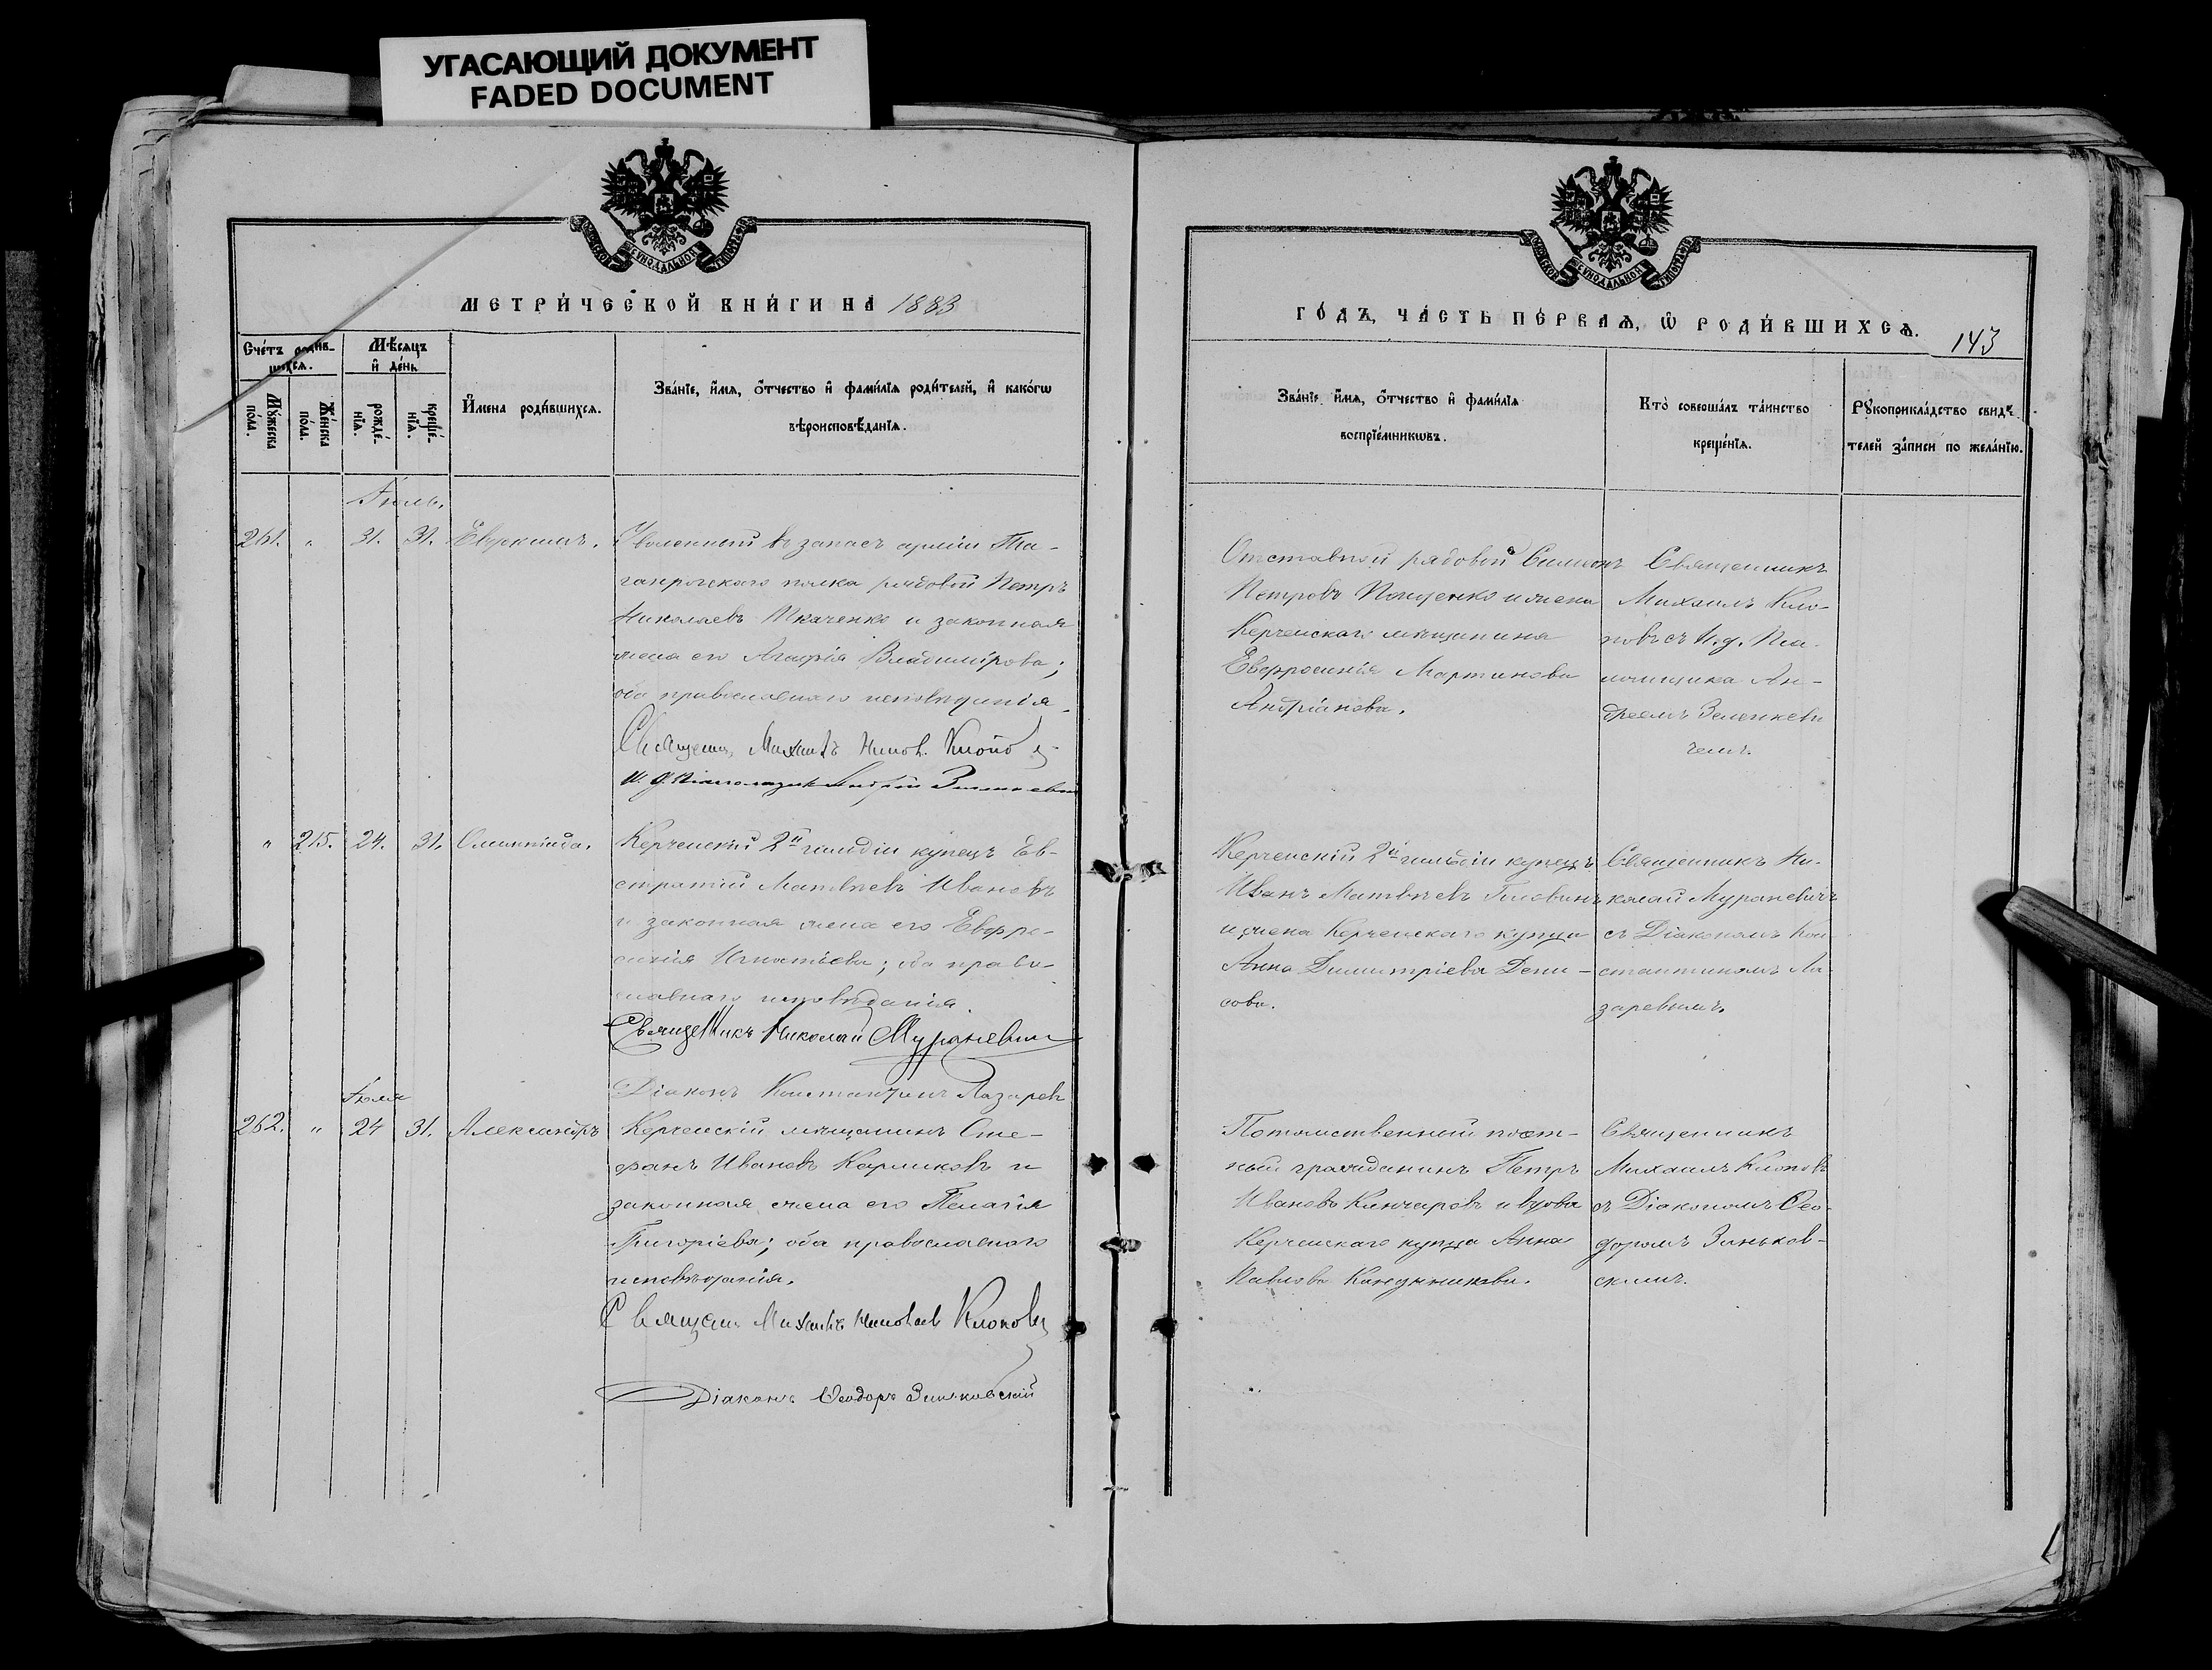 УГАСАЮЩИЙ ДОКУМЕНТ
FADED DOCUMENT
МЕТРИ́ЧЕСКОЙ КНИ́ГИ НА 1883
Сче́тъ роди́в-
шихся.
Мꙋ́жеска
по́ла.
Же́нска
по́ла.
Мѣ́сяцъ
и҆ де́нь
рожде́-
нїѧ.
креще́-
нїѧ.
И҆мена роди́вшихсѧ.
Зва́нїе, и҆́мѧ, ѻ҆́тчество и҆ фами́лїѧ роди́телей, и҆ како́гѡ
вѣроисповѣ́данїѧ.
Іюль.
261. „ 31. 31. Уволенный въ запасъ арміи Та-
ганрогскаго полка рядовой Петръ
Николаевъ Ткаченко и законная
жена его Агафія Владимірова;
оба православнаго исповѣданія.
Священ. Михаилъ Клопов
И. д. Псаломщик Андрей Зеленкевич
„ 215. 24. 31. Олимпіада. Керченскій 2й гильдіи купецъ Ев-
стратій Матвѣевъ Ивановъ
и законная жена его Евфро-
синія Игнатіева; оба право-
славнаго исповѣданія.
Священникъ Николай Мураневич
Діаконъ Константинъ Лазарев
Іюля
262. „ 24 31. Александръ Керченскій мѣщанинъ Сте-
фанъ Ивановъ Карликовъ и
законная жена его Пелагія
Григоріева; оба православнаго
исповѣданія.
Священ. Михаилъ Клоповъ
Діаконъ Ѳеодоръ Зиньковскій
ГО́ДЪ, ЧА́СТЬ ПЕ́РВАѦ, Ѡ҆ РОДИ́ВШИХСѦ. 143
Зва́нїе, и҆́мѧ, ѻ҆́тчество и҆ фами́лїѧ
воспрїе́мникѡвъ.
Кто̀ соверша́лъ та́инство
креще́нїѧ.
Рꙋкоприкла́дство свидѣ́-
телей за́писи по жела́нїю.
Отставной рядовой Симеонъ
Петровъ Пащенко и жена
Керченскаго мѣщанина
Евфросинія Мартинова
Андріанова.
Священникъ
Михаилъ Кло-
повъ съ И. д. Пса-
ломщика Ан-
дреемъ Зеленкеви
чемъ.
Керченскій 2й гильдіи купецъ
Иванъ Матвѣевъ
и жена Керченскаго купца
Анна Димитріева Дени-
сова.
Священникъ Ни-
колай Мураневичъ
съ Діакономъ Кон
стантиномъ Ла
заревымъ.
Потомственный почет-
ный гражданинъ Петръ
Ивановъ Кянчаровъ и вдова
Керченскаго купца Анна
Павлова
Священникъ
Михаилъ Клоповъ
съ Діакономъ Ѳео-
доромъ Зиньков-
скимъ.